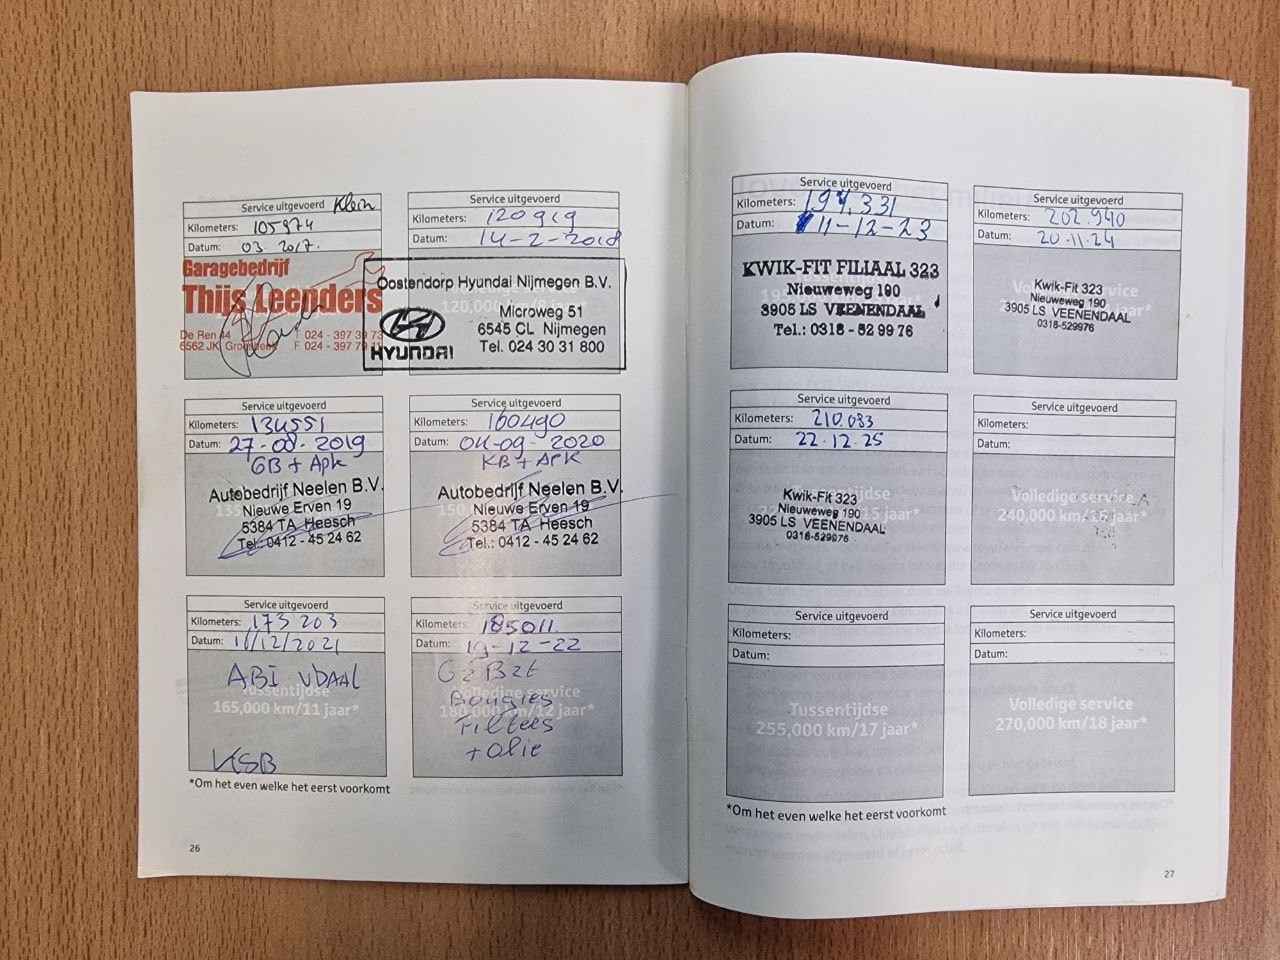 Service uitgevoerd Klein
Kilometers: 105974
Datum: 03 2017.
Garagebedrijf
Thijs Leenders
De Ren
T 024 - 397 39 73
6562 JK
F 024 - 397 79
Service uitgevoerd
Kilometers: 120919
Datum: 14-2-2018
120,000 km/8 jaar*
Oostendorp Hyundai Nijmegen B.V.
Microweg 51
6545 CL Nijmegen
Tel. 024 30 31 800
HYUNDAI
Service uitgevoerd
Kilometers: 134551
Datum: 27-08-2019
GB + Apk
Autobedrijf Neelen B.V.
Nieuwe Erven 19
5384 TA Heesch
Tel.: 0412 - 45 24 62
Service uitgevoerd
Kilometers: 160490
Datum: 04-09-2020
KB + APK
Autobedrijf Neelen B.V.
Nieuwe Erven 19
5384 TA Heesch
Tel.: 0412 - 45 24 62
Service uitgevoerd
Kilometers: 173 203
Datum: /12/2021
ABI VDAAL
Tussentijdse
165,000 km/11 jaar*
KSB
Service uitgevoerd
Kilometers: 185011
Datum: 19-12-22
Bougies
Volledige service
180,000 km/12 jaar*
Filters
+ Olie
*Om het even welke het eerst voorkomt
26
Service uitgevoerd
Kilometers: 197.331
Datum: 11-12-23
KWIK-FIT FILIAAL 323
Nieuweweg 190
3905 LS VEENENDAAL
Tel.: 0318 - 52 99 76
Service uitgevoerd
Kilometers: 202.940
Datum: 20.11.24
Volledige service
Kwik-Fit 323
Nieuweweg 190
3905 LS VEENENDAAL
0318-529976
Service uitgevoerd
Kilometers: 210.083
Datum: 22.12.25
Tussentijdse
Kwik-Fit 323
Nieuweweg 190
3905 LS VEENENDAAL
0318-529976
Service uitgevoerd
Kilometers:
Datum:
Volledige service
240,000 km/16 jaar*
Service uitgevoerd
Kilometers:
Datum:
Tussentijdse
255,000 km/17 jaar*
Service uitgevoerd
Kilometers:
Datum:
Volledige service
270,000 km/18 jaar*
*Om het even welke het eerst voorkomt
27